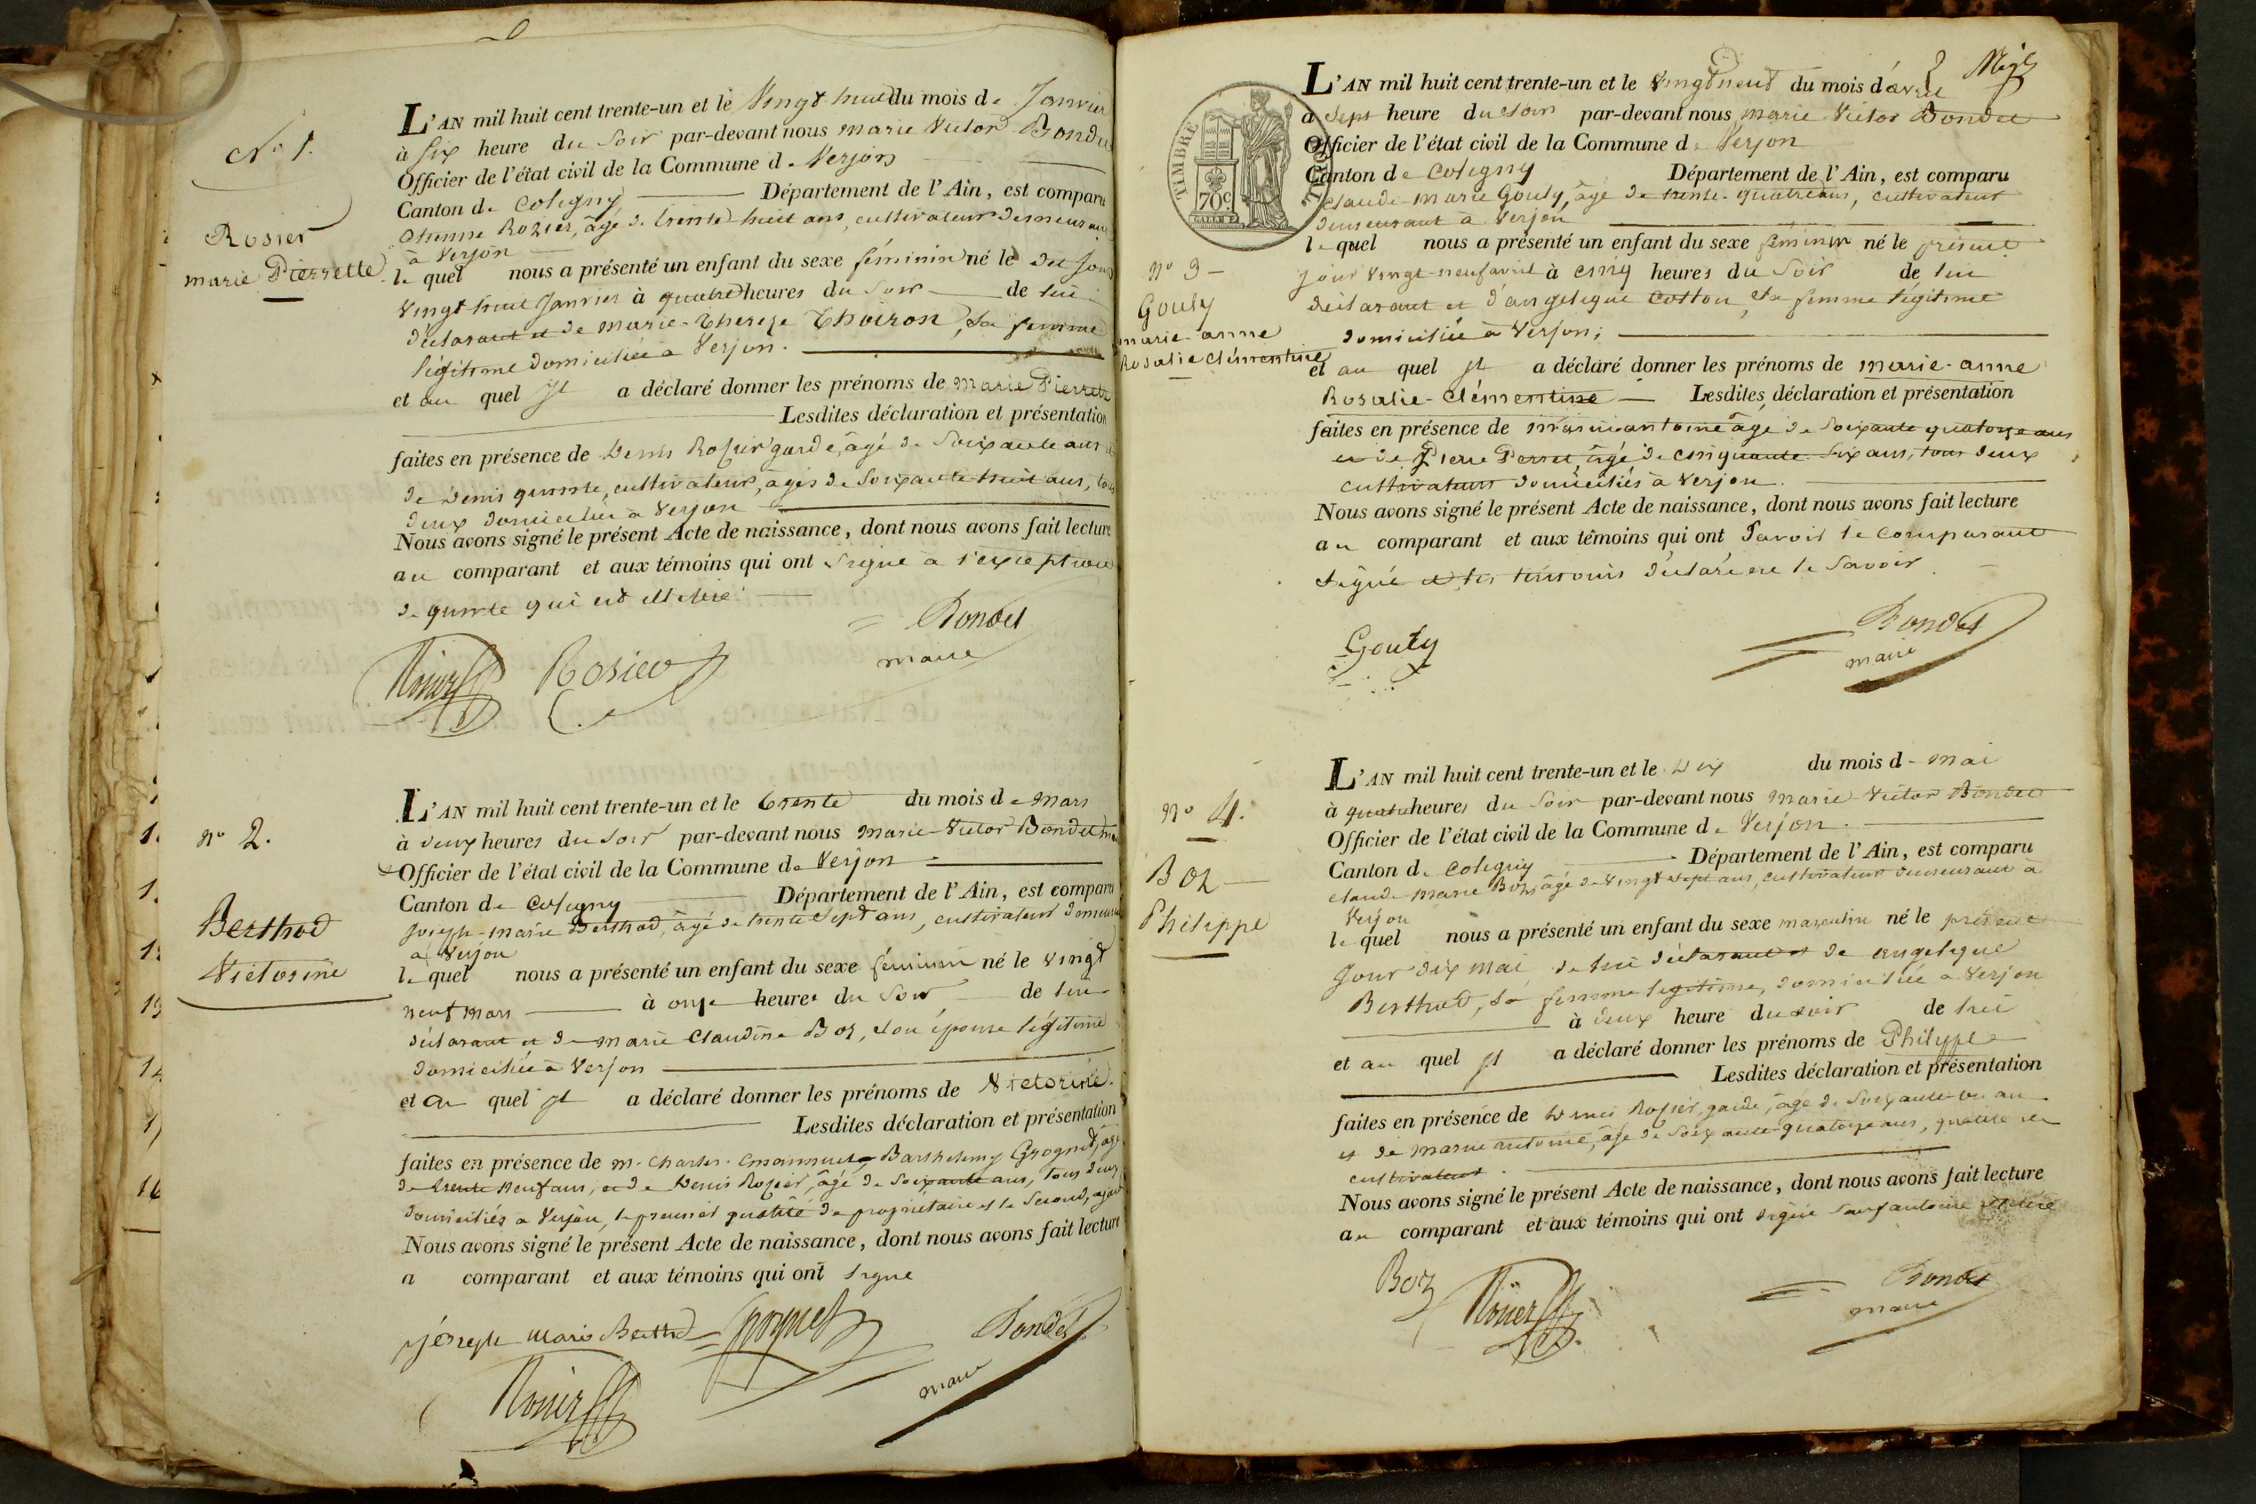 N° 1.
Rosier
marie Pierrette
L'AN mil huit cent trente-un et le Vingt huit du mois de Janvier
à Six heure du Soir par-devant nous marie Victor Bondet
Officier de l'état civil de la Commune de Verjon
Canton de Coligny Département de l'Ain, est comparu
Rozier, âgé de trente-huit ans, cultivateur demeurant
à Verjon
le quel nous a présenté un enfant du sexe féminin né le du jour
Vingt huit Janvier à quatre heures du Soir de lui
déclarant et de marie-Thereze Thoiron, sa femme
légitime domiciliée à Verjon.
et au quel il a déclaré donner les prénoms de Marie Pierrette
Lesdites déclaration et présentation
faites en présence de Denis Rosier garde, âgé de Soixante ans et
de Denis, cultivateur, âgés de Soixante huit ans, tous
deux domiciliés à Verjon
Nous avons signé le présent Acte de naissance, dont nous avons fait lecture
au comparant et aux témoins qui ont Signé à l'exception
de qui est illitéré
Bondet
maire
Rosier
n° 2.
Berthod
Victorine
L'AN mil huit cent trente-un et le trente du mois de Mars
à deux heures du Soir par-devant nous Marie-Victor Bondet
Officier de l'état civil de la Commune de Verjon
Canton de Coligny Département de l'Ain, est comparu
joseph-marie Berthod, âgé de trente Sept ans, cultivateur demeurant
à Verjon
le quel nous a présenté un enfant du sexe féminin né le vingt
neuf mars à onze heures du Soir de lui
déclarant et de marie Claudine Boz, son épouse légitime
domiciliée à Verjon
et au quel il a déclaré donner les prénoms de Victorine.
Lesdites déclaration et présentation
faites en présence de m. Charles Emannuel Barthelemy Grognet, âgé
de trente neuf ans, et de Denis Rozier, âgé de Soixante ans, tous deux
domiciliés à Verjon, le premier qualité de propriétaire et le Second,
Nous avons signé le présent Acte de naissance, dont nous avons fait lecture
a comparant et aux témoins qui ont signé
joseph Marie Berthod
Grognet
Bondet
maire
TIMBRE
70c
L'AN mil huit cent trente-un et le Vingt neuf du mois d'avril
à Sept heure du Soir par-devant nous marie Victor Bondet
Officier de l'état civil de la Commune de Verjon
Canton de Coligny Département de l'Ain, est comparu
Claude-Marie Gouly, âgé de trente-quatre ans, cultivateur
demeurant à Verjon
le quel nous a présenté un enfant du sexe féminin né le présent
jour Vingt-neuf avril à cinq heures du Soir de lui
déclarant et d'angelique Cotton, sa femme légitime
domiciliée à Verjon;
n° 3
Gouly
marie-anne
Rosalie Clémentine
et au quel il a déclaré donner les prénoms de marie-anne
Rosalie-Clémentine Lesdites déclaration et présentation
faites en présence de antoine âgé de Soixante quatorze ans
et de Pierre Perret, âgé de cinquante Six ans, tous deux
cultivateurs domiciliés à Verjon.
Nous avons signé le présent Acte de naissance, dont nous avons fait lecture
au comparant et aux témoins qui ont Savoir le comparant
signé et les témoins déclaré ne le Savoir.
Gouly
Bondet
maire
n° 4.
Boz
Philippe
L'AN mil huit cent trente-un et le Dix du mois de mai
à quatre heures du Soir par-devant nous Marie-Victor Bondet
Officier de l'état civil de la Commune de Verjon.
Canton de Coligny Département de l'Ain, est comparu
Claude-Marie Boz, âgé de Vingt Sept ans, cultivateur demeurant à
Verjon
le quel nous a présenté un enfant du sexe masculin né le présent
jour dix mai de lui déclarant et de angelique
Berthod, sa femme légitime, domiciliée à Verjon
à deux heure du soir de lui
et au quel il a déclaré donner les prénoms de Philippe
Lesdites déclaration et présentation
faites en présence de Denis Rosier, garde, âgé de Soixante un an
et de antoine, âgé de Soixante-quatorze ans,
cultivateur.
Nous avons signé le présent Acte de naissance, dont nous avons fait lecture
au comparant et aux témoins qui ont signé Sauf antoine illitéré
Boz
Bondet
maire